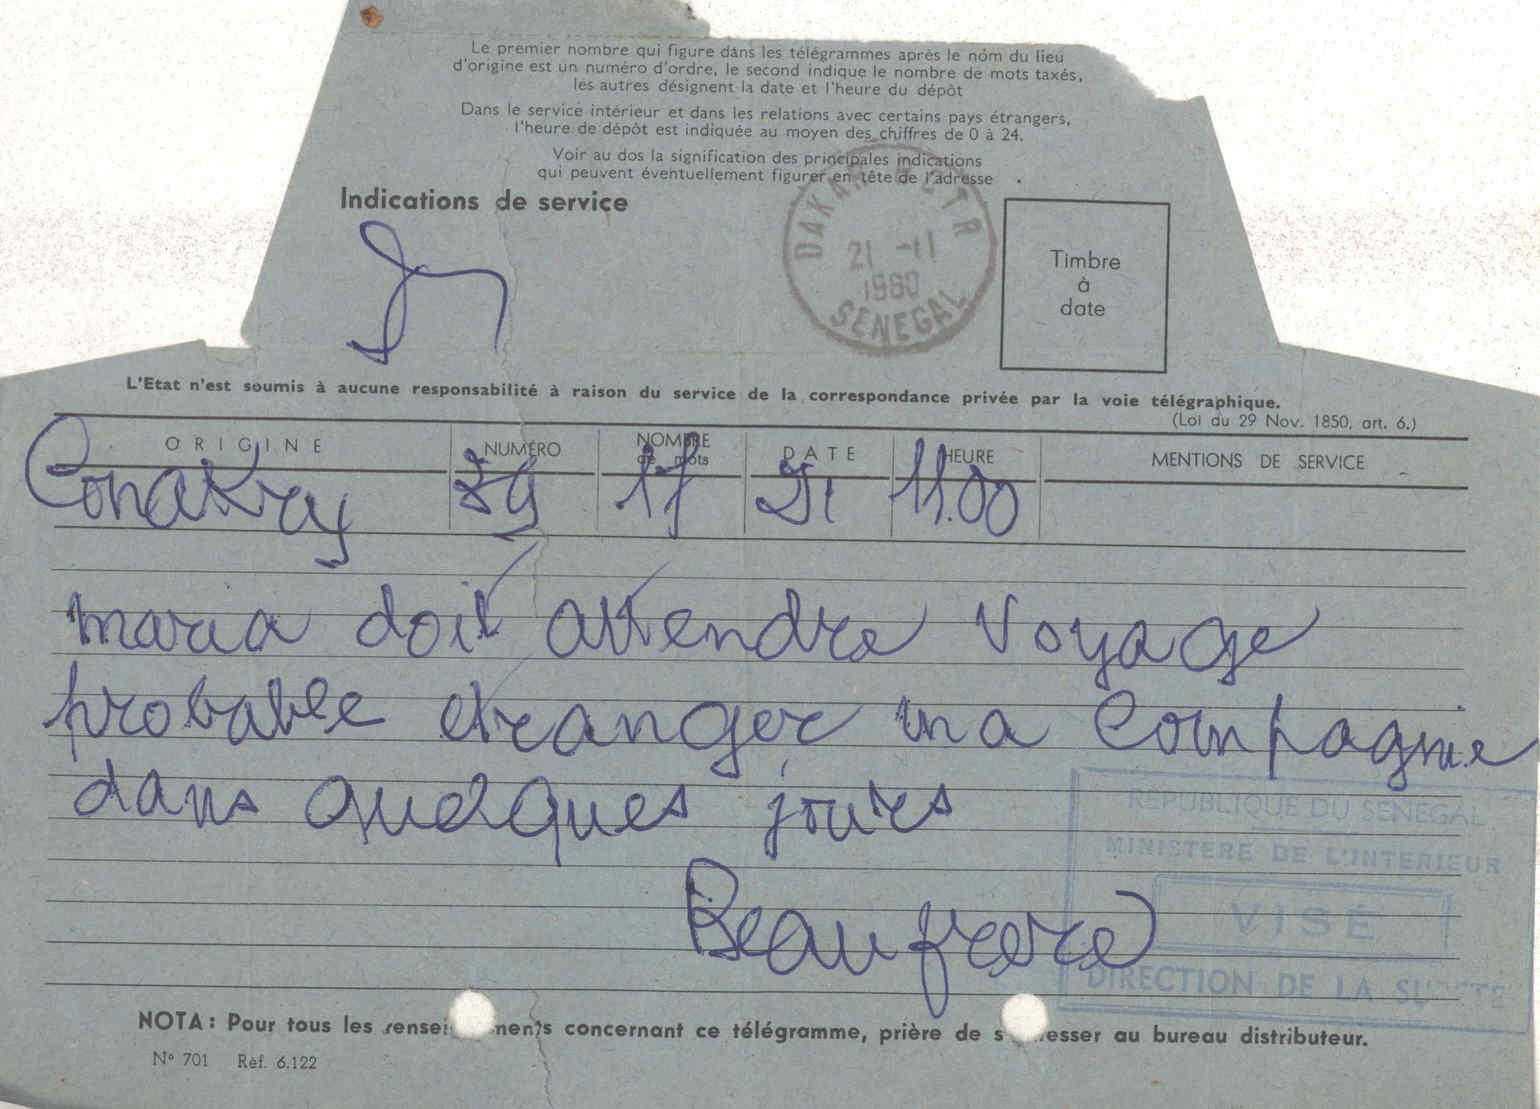 Le premier nombre qui figure dans les télégrammes après le nom du lieu
d'origine est un numéro d'ordre, le second indique le nombre de mots taxés,
les autres désignent la date et l'heure du dépôt
Dans le service intérieur et dans les relations avec certains pays étrangers,
l'heure de dépôt est indiquée au moyen des chiffres de 0 à 24.
Voir au dos la signification des principales indications
qui peuvent éventuellement figurer en tête de l'adresse
Indications de service
DAKAR
21 -11
1960
SENEGAL
Timbre
à
date
L'Etat n'est soumis à aucune responsabilité à raison du service de la correspondance privée par la voie télégraphique.
(Loi du 29 Nov. 1850, art. 6.)
ORIGINE NUMÉRO NOMBRE de mots DATE HEURE MENTIONS DE SERVICE
Conakry 17 21 11.00
maria doit attendre voyage
probable etranger ma Compagnie
dans quelques jours
Beaufrere
REPUBLIQUE DU SENEGAL
MINISTERE DE L'INTERIEUR
VISÉ
DIRECTION DE LA
NOTA : Pour tous les concernant ce télégramme, prière de au bureau distributeur.
N° 701 Réf. 6.122